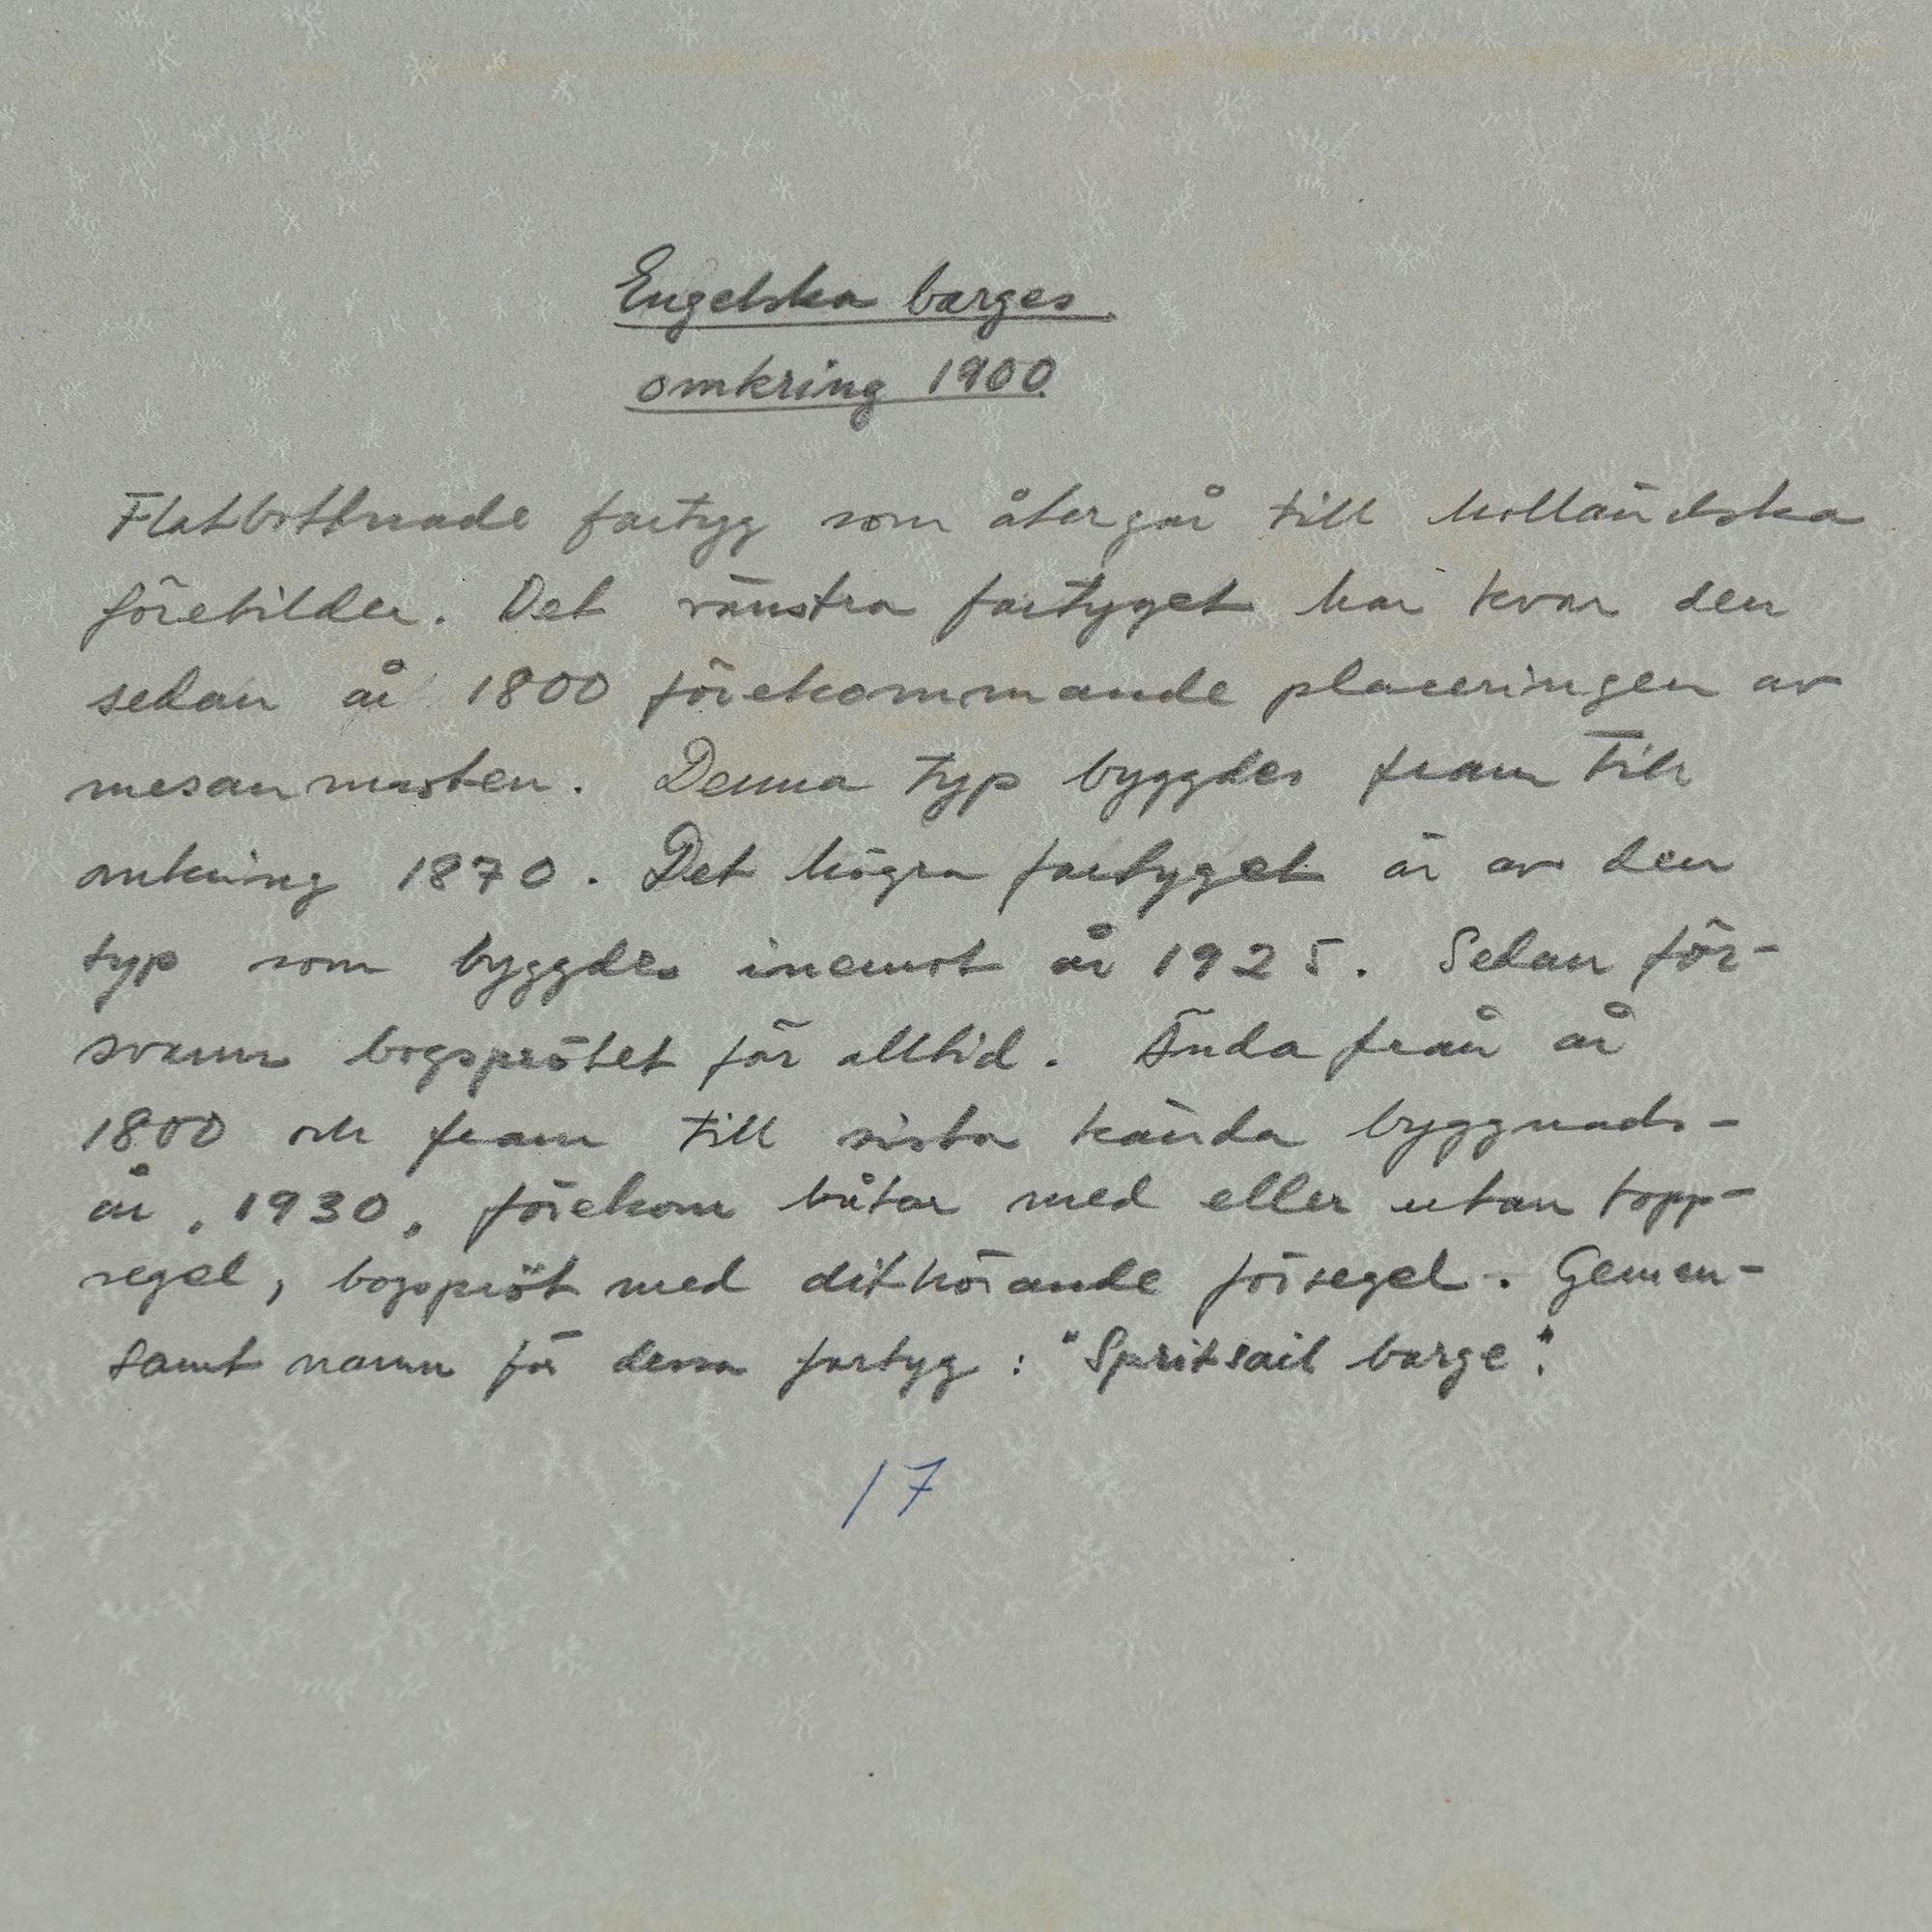 Engelska barges
omkring 1900.
Flatbottnade fartyg som återgår till holländska
förebilder. Det vänstra fartyget har kvar den
sedan år 1800 förekommande placeringen av
mesanmasten. Denna typ byggdes fram till
omkring 1870. Det högra fartyget är av den
typ som byggdes inemot år 1925. Sedan för-
svann bogsprötet för alltid. Ända från år
1800 och fram till sista kända byggnads-
år, 1930, förekom båtar med eller utan topp-
segel, bogspröt med dithörande försegel. Gemen-
samt namn för dessa fartyg: "Spritsail barge".
17